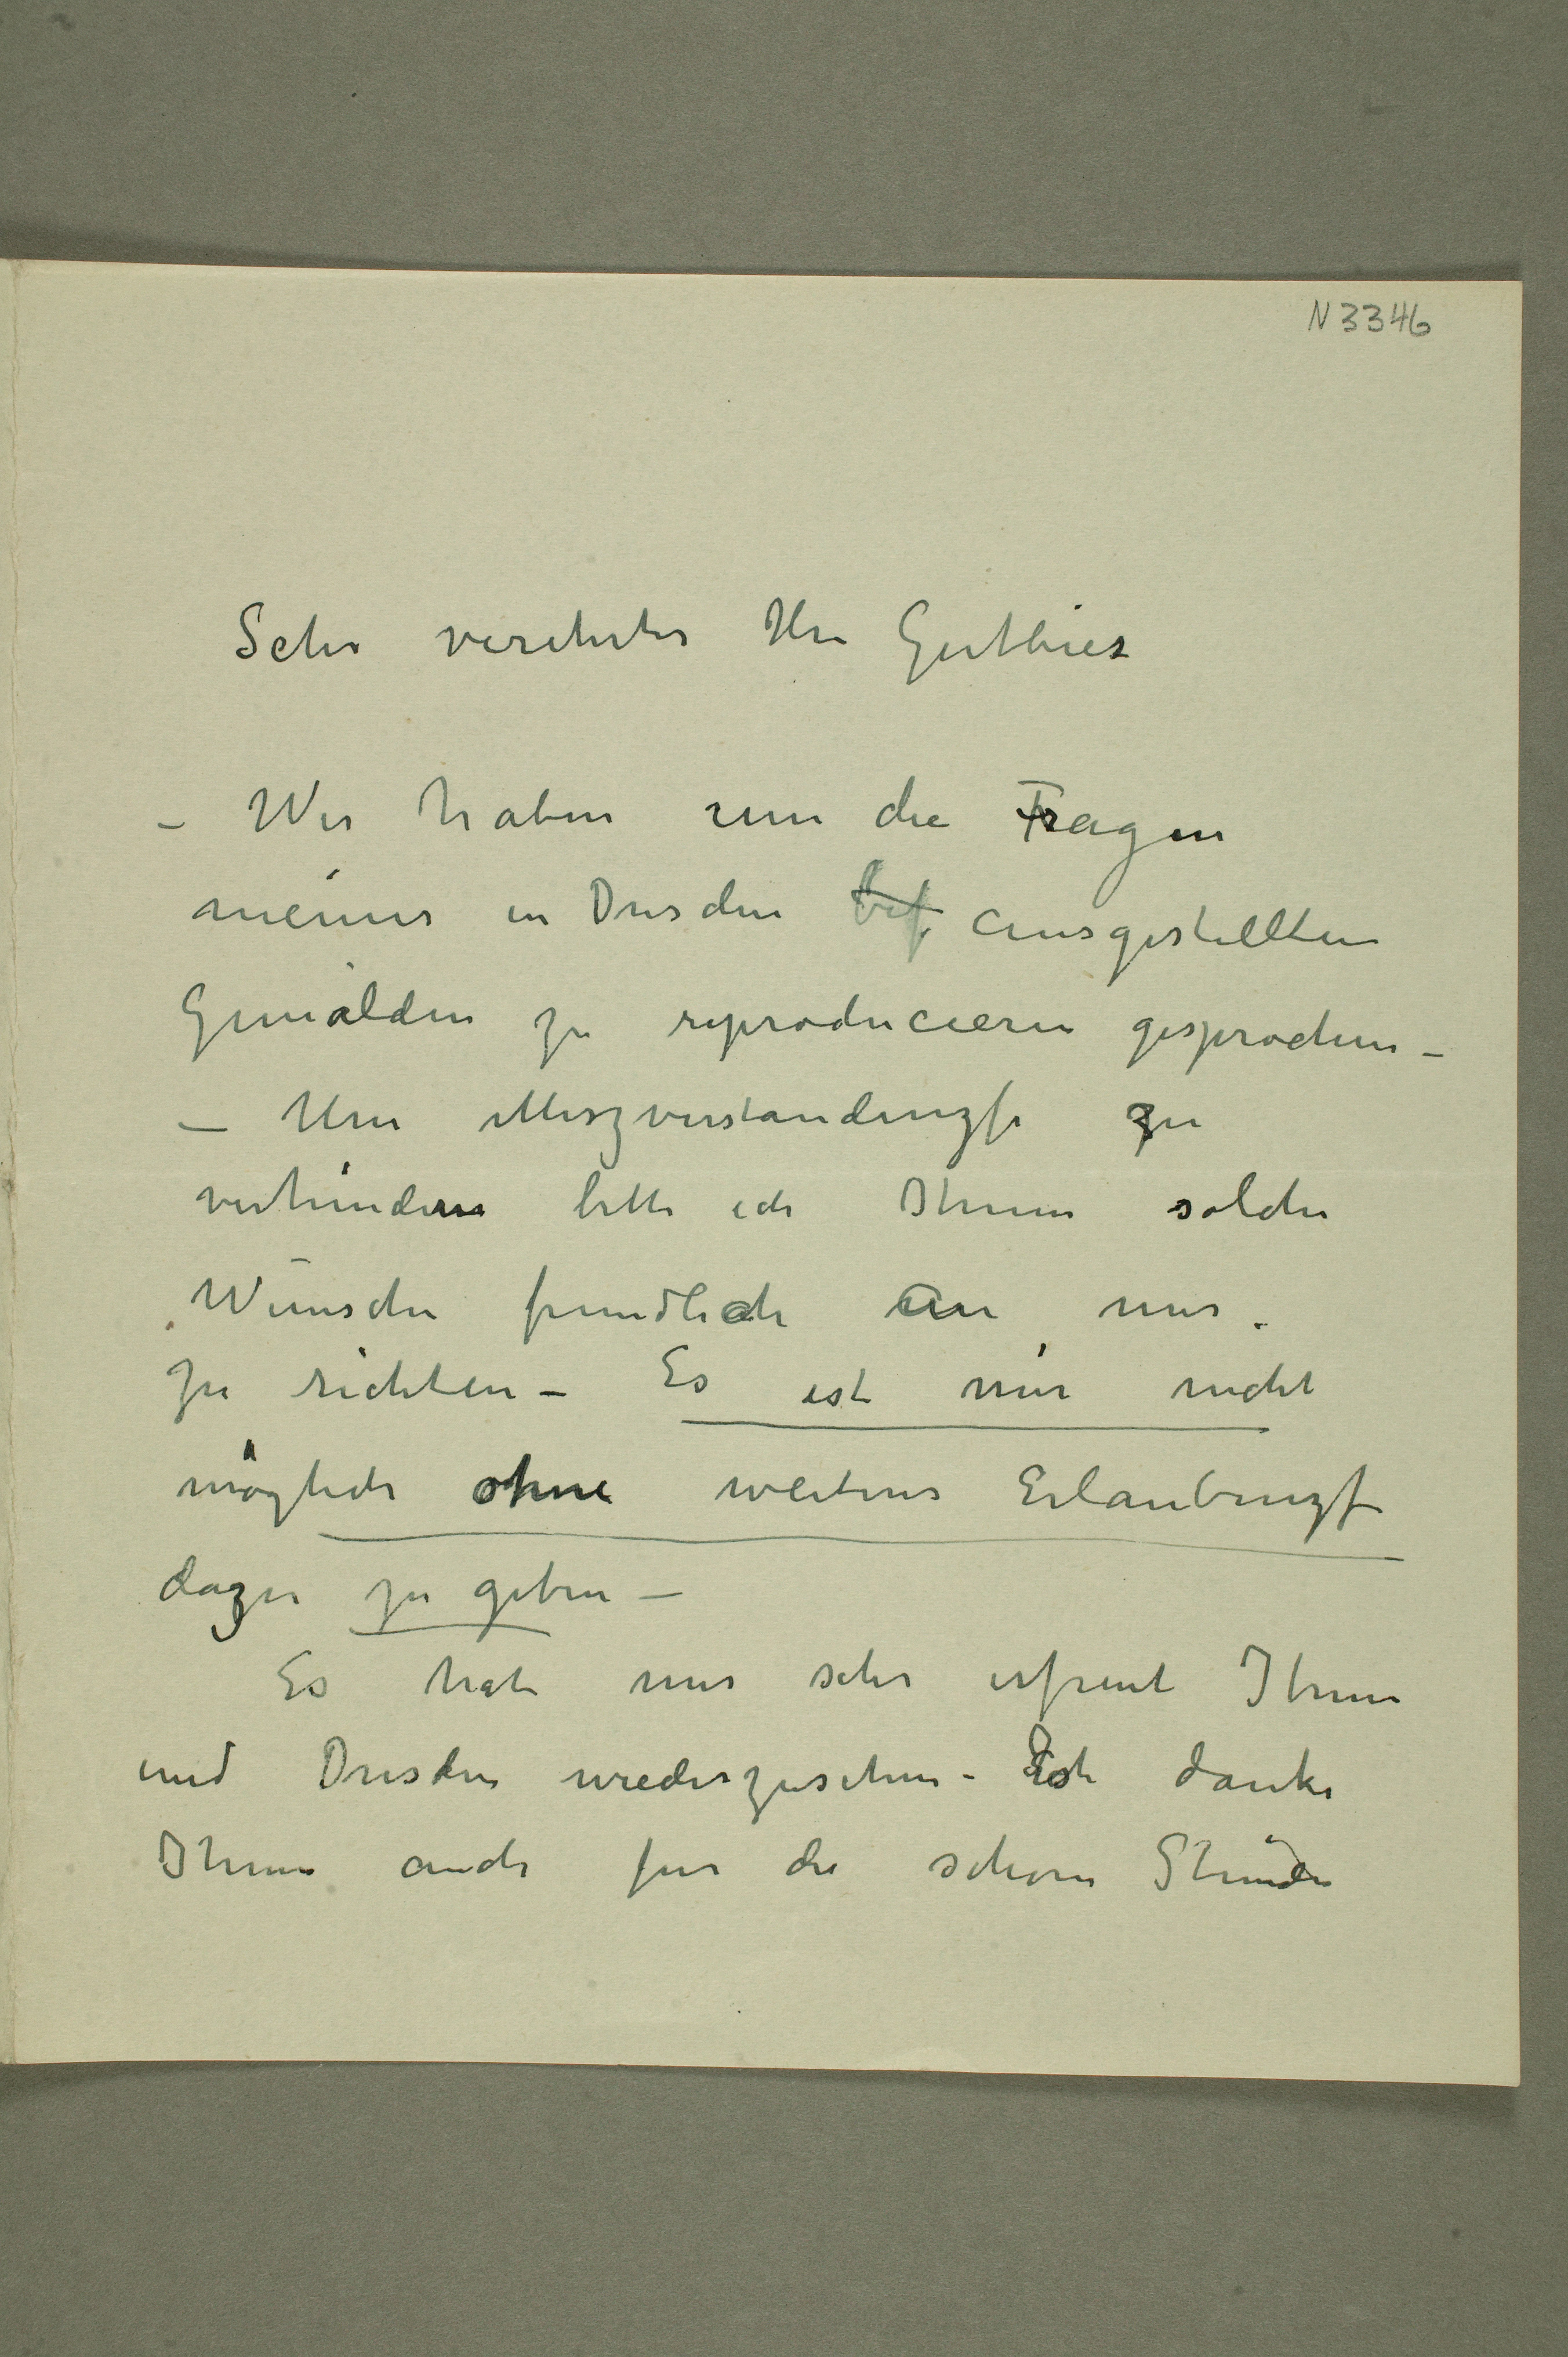 N 3346
Sehr verehrter Herr Gutbier
– Wir haben um die Fragen
meiner in Dresden bef ausgestellten
Gemälden zu reproducieren gesprochen –
– Um Miszverständnisze zu
verhindern bitte ich Ihnen solche
Wünsche freundlich an mir
zu richten – Es ist mir nicht
möglich ohne weiteres Erlaubnisz
dazu zu geben –
Es hat mir sehr erfreut Ihnen
und Dresden wiederzusehen – Ich danke
Ihnen auch für die schöne Stunde